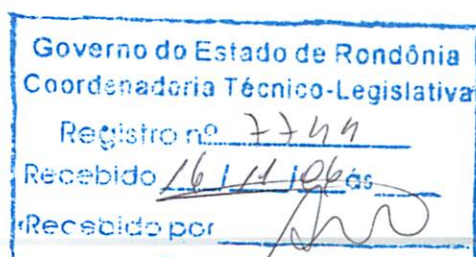 Governo do Estado de Rondônia
Coordenadoria Técnico-Legislativa
Registro nº 7744
Recebido 16/11/06 às
Recebido por